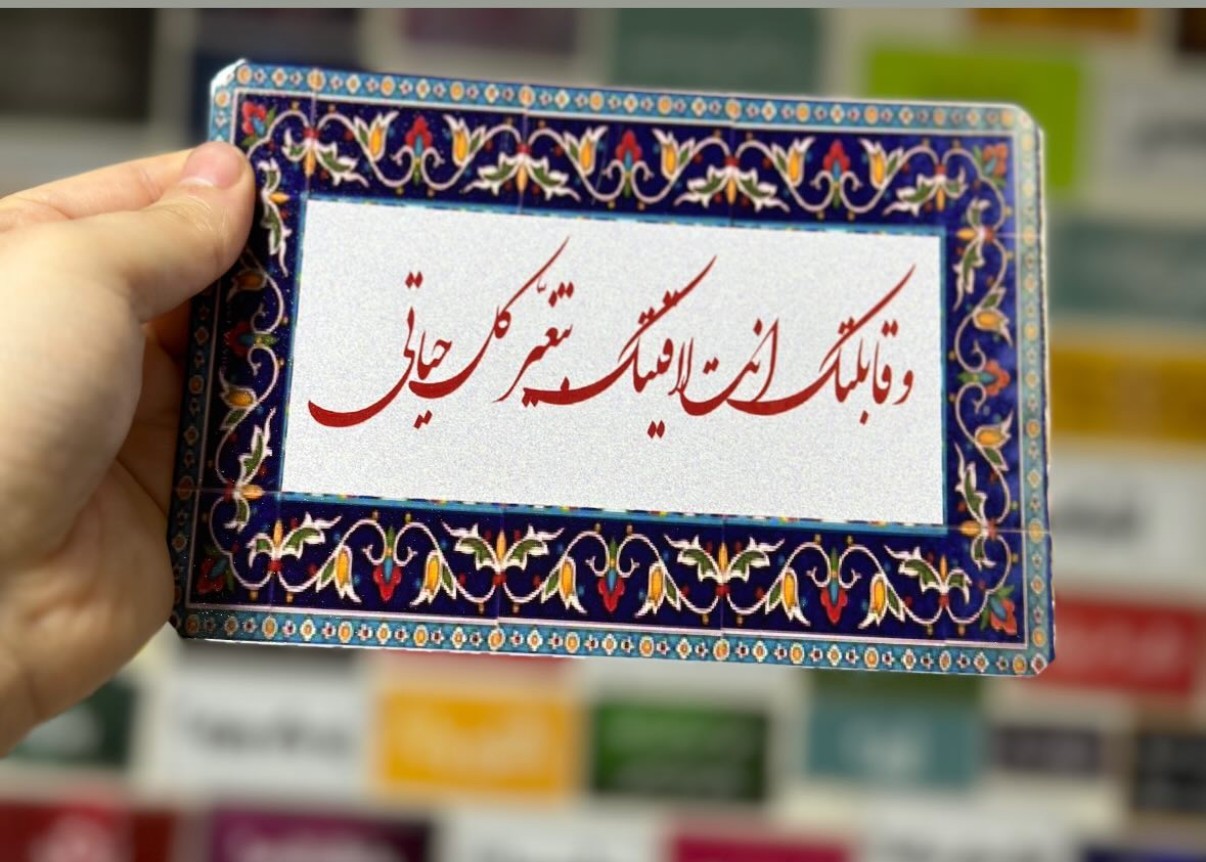 وقابلتك انت لاقيتك بتغير كل حياتي